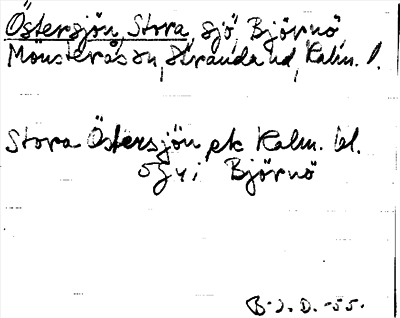 Östersjön, Stora, sjö, Björnö,
Mönsterås sn, Stranda hd, Kalm. l.
Stora Östersjön, ek Kalm. bl.
5g y i Björnö
B. J. D. -55.